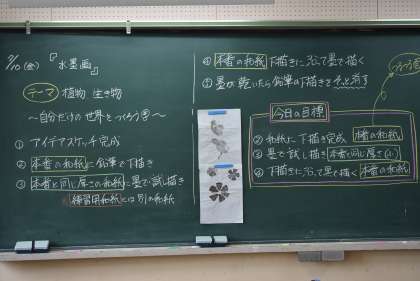 2/10(金)『水墨画』
テーマ 植物 生き物
～自分だけの世界をつくろう②～
① アイデアスケッチ完成
② 本番の和紙に鉛筆で下描き
③ 本番と同じ厚さの和紙に墨で試し描き
練習用和紙とは別の和紙
④ 本番の和紙 下描きに沿って墨で描く
⑤ 墨が乾いたら鉛筆の下描きをそっと消す
つくろう
今日の目標
② 和紙に下描き完成 本番の和紙
③ 墨で試し描き 本番と同じ厚さ
④ 下描きに沿って墨で描く 本番の和紙